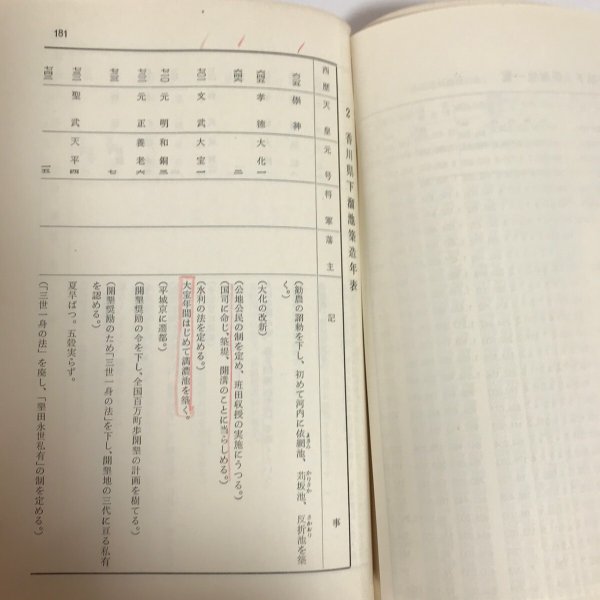 181
2 香川県下溜池築造年表
西暦 天皇 元号 将軍 藩主 記事
崇神 (勧農の詔勅を下し、初めて河内に依網池、苅坂池、反折池を築
く。)
六四五 孝徳 大化 一 (大化の改新)
六四六 二 (公地公民の制を定め、班田収授の実施にうつる。)
(国司に命じ、築堤、開溝のことに当らしめる。)
七〇一 文武 大宝 一 (水利の法を定める。)
大宝年間はじめて満濃池を築く。
七一〇 元明 和銅 三 (平城京に遷都。)
七二二 元正 養老 六 (開墾奨励の令を下し、全国百万町歩開墾の計画を樹てる。)
七二三 七 (開墾奨励のため「三世一身の法」を下し、開墾地の三代に亘る私有
を認める。)
七三二 聖武 天平 四 夏旱ばつ。五穀実らず。
七四三 一五 (「三世一身の法」を廃し、「墾田永世私有」の制を定める。)